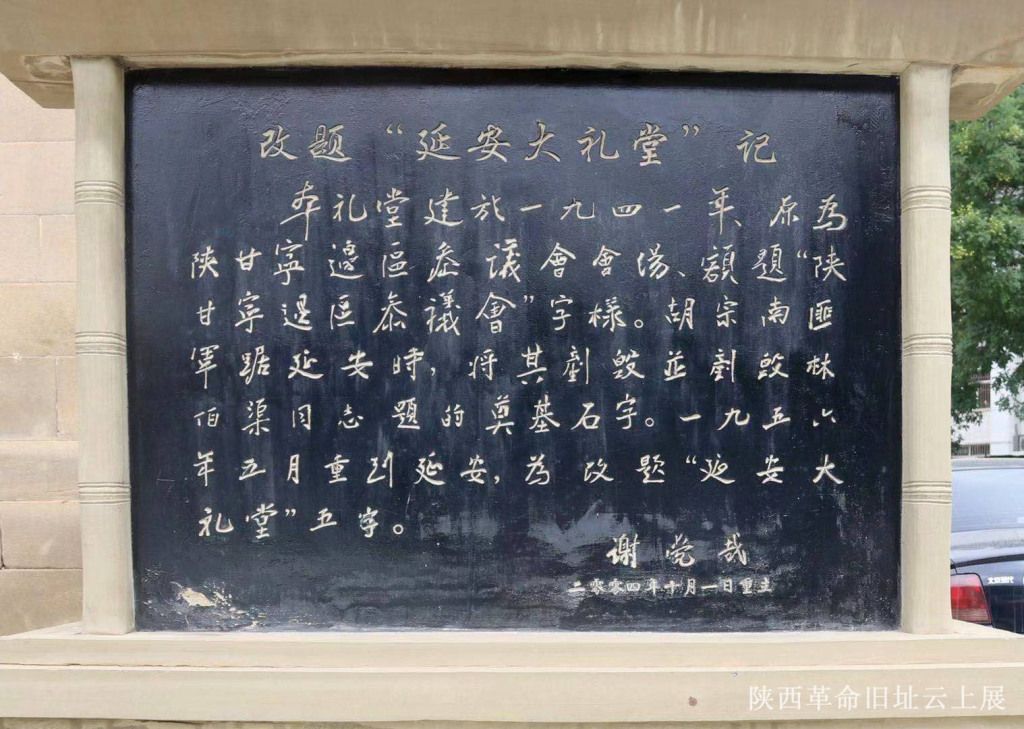 改题“延安大礼堂”记
本礼堂建於一九四一年、原為
陕甘寧邊區叅議會會場、額題“陕
甘寧邊區叅議會”字樣。胡宗南匪
军踞延安時，将其剷毁並剷毁林
伯渠同志題的奠基石字。一九五六
年五月重到延安，為改题“延安大
礼堂”五字。
谢觉哉
二零零四年十月一日重立
陕西革命旧址云上展